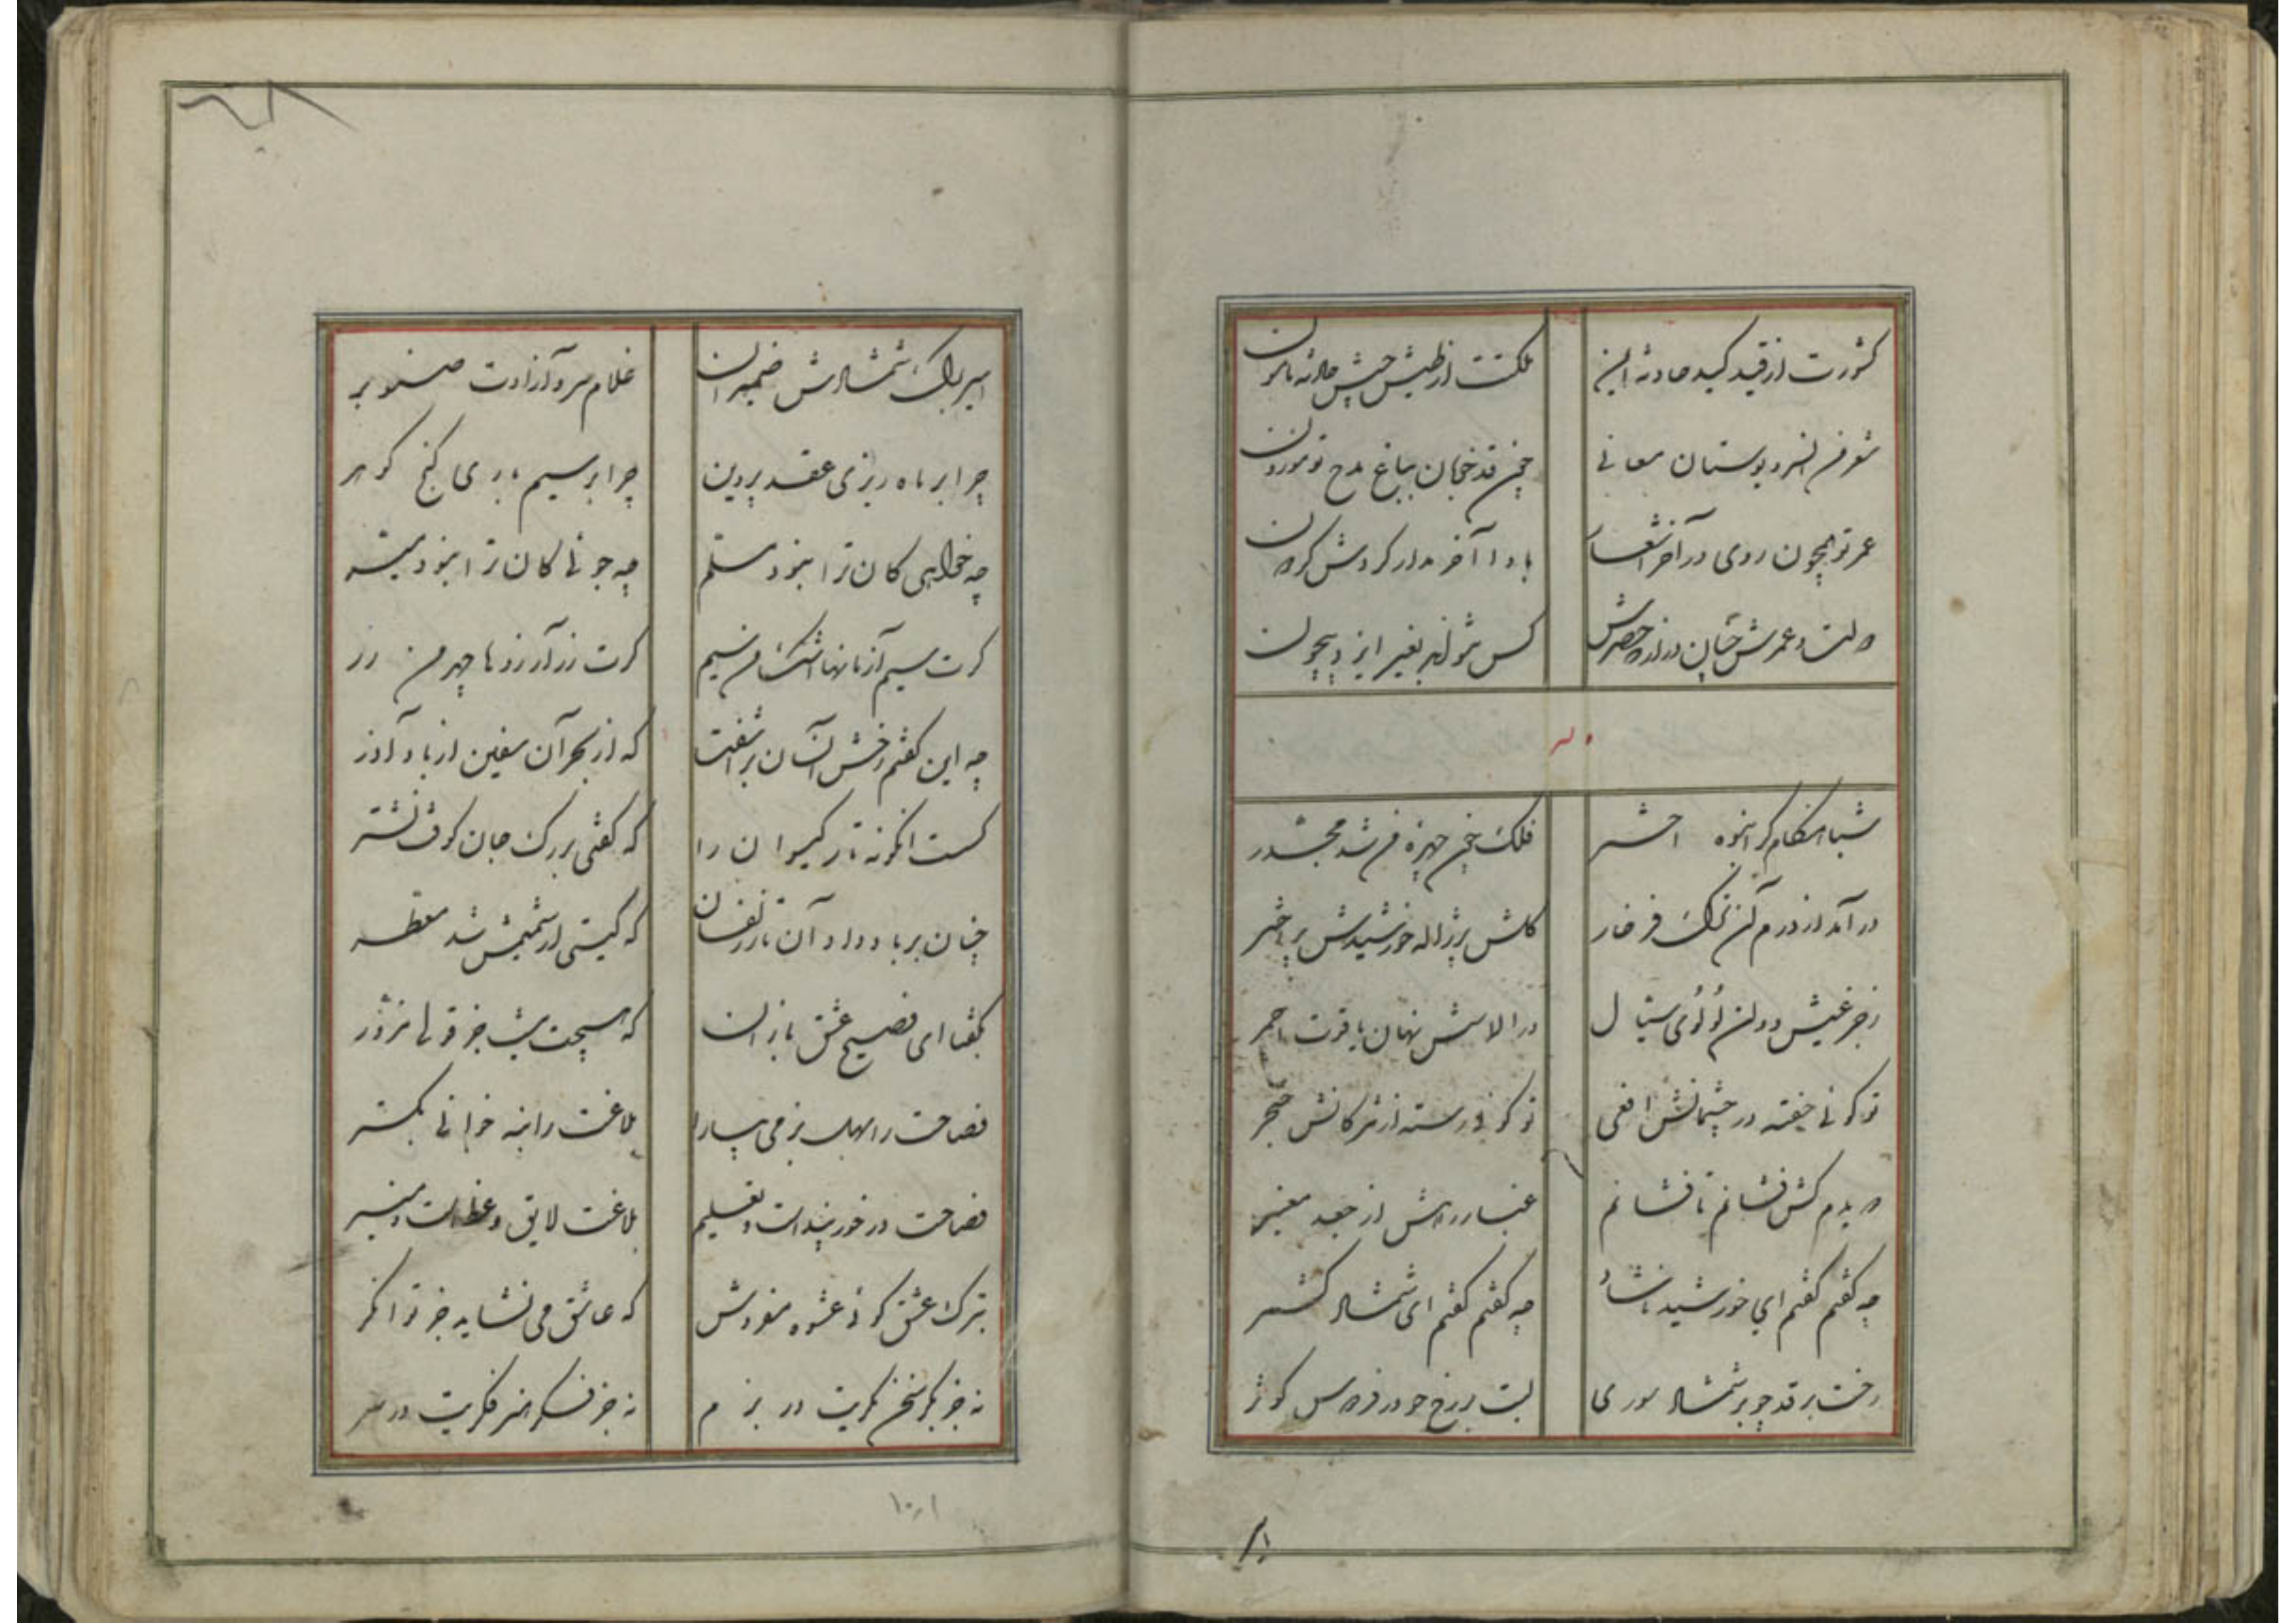 کشورت از قید کید حادثه ایمن
ملکت از طیش جیش حادثه مامون
شعر من انسرو بوستان معانی
چمن قد خجان بباغ مدح تو موزون
عمر تو همچون روی در آخر اشعار
بادا آخر مدار کردش کردون
دولت و عمرش چنان در از ده حصرش
کس نتواند بغیر ایزد بیچون
وله
شبا هنکام کز انبوه اختر
فلک چون چهره من شد مجدر
در آمد از درم آن ترک فرخار
کلش پر ژاله خورشیدش پر اختر
ز جزعینش دوان لؤلؤی سیال
در الماسش نهان یاقوت احمر
تو کوئی خفته در چشمانش افعی
تو کوئی رسته از مژکانش خنجر
دویدم کش فشانم تا فشانم
غبار رهش از جعد معنبر
چه کفتم کفتم ای خورشید نوشاد
چه کفتم کفتم ای شمشاد کشمر
رخت بر قد چو بر شمشاد سوری
لبت بر رخ چو در فردوس کوثر
اسیر برک شمشادش ضمیران
غلام سرو آزادت صنوبر
چرا بر ماه ریزی عقد پروین
چرا بر سیم باری کنج کوهر
چه خواهی کان ترا نبود مسلم
چه جوئی کان ترا نبود میسر
کرت سیم آرمانها اشک من سیم
کرت زر آرزوها چهر من زر
چه این کفتم رخش آنسان بر آشفت
که از بحر آن سفین از باد آذر
کسست انکونه تار کیسوان را
که کفتی بر رک جان کوفت نشتر
چنان بر باد داد آن تار زلفان
که کیتی از شمیمش شد معطر
بکفتا ای فصیح عشق بازان
که هیچت نیست جز قولی مزور
فصاحت را بهل بزمی بیارا
بلاغت را بنه خوانی بکستر
فصاحت در خور پند است و تعلیم
بلاغت لایق وعظ است و منبر
بترک عشق کو و عشوه مفروش
که عاشق می نشاید جز توانکر
نه جز بکر سخن بکریت در بزم
نه جز فکر هنر فکریت در سر